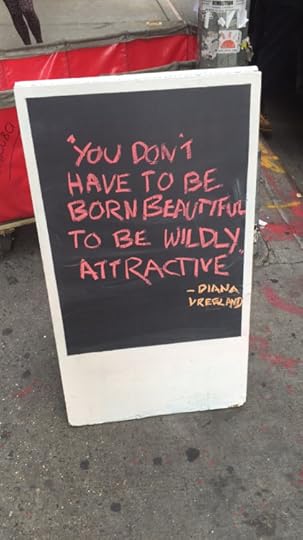 "YOU DON'T
HAVE TO BE
BORN BEAUTIFUL
TO BE WILDLY
ATTRACTIVE"
- DIANA
VREELAND